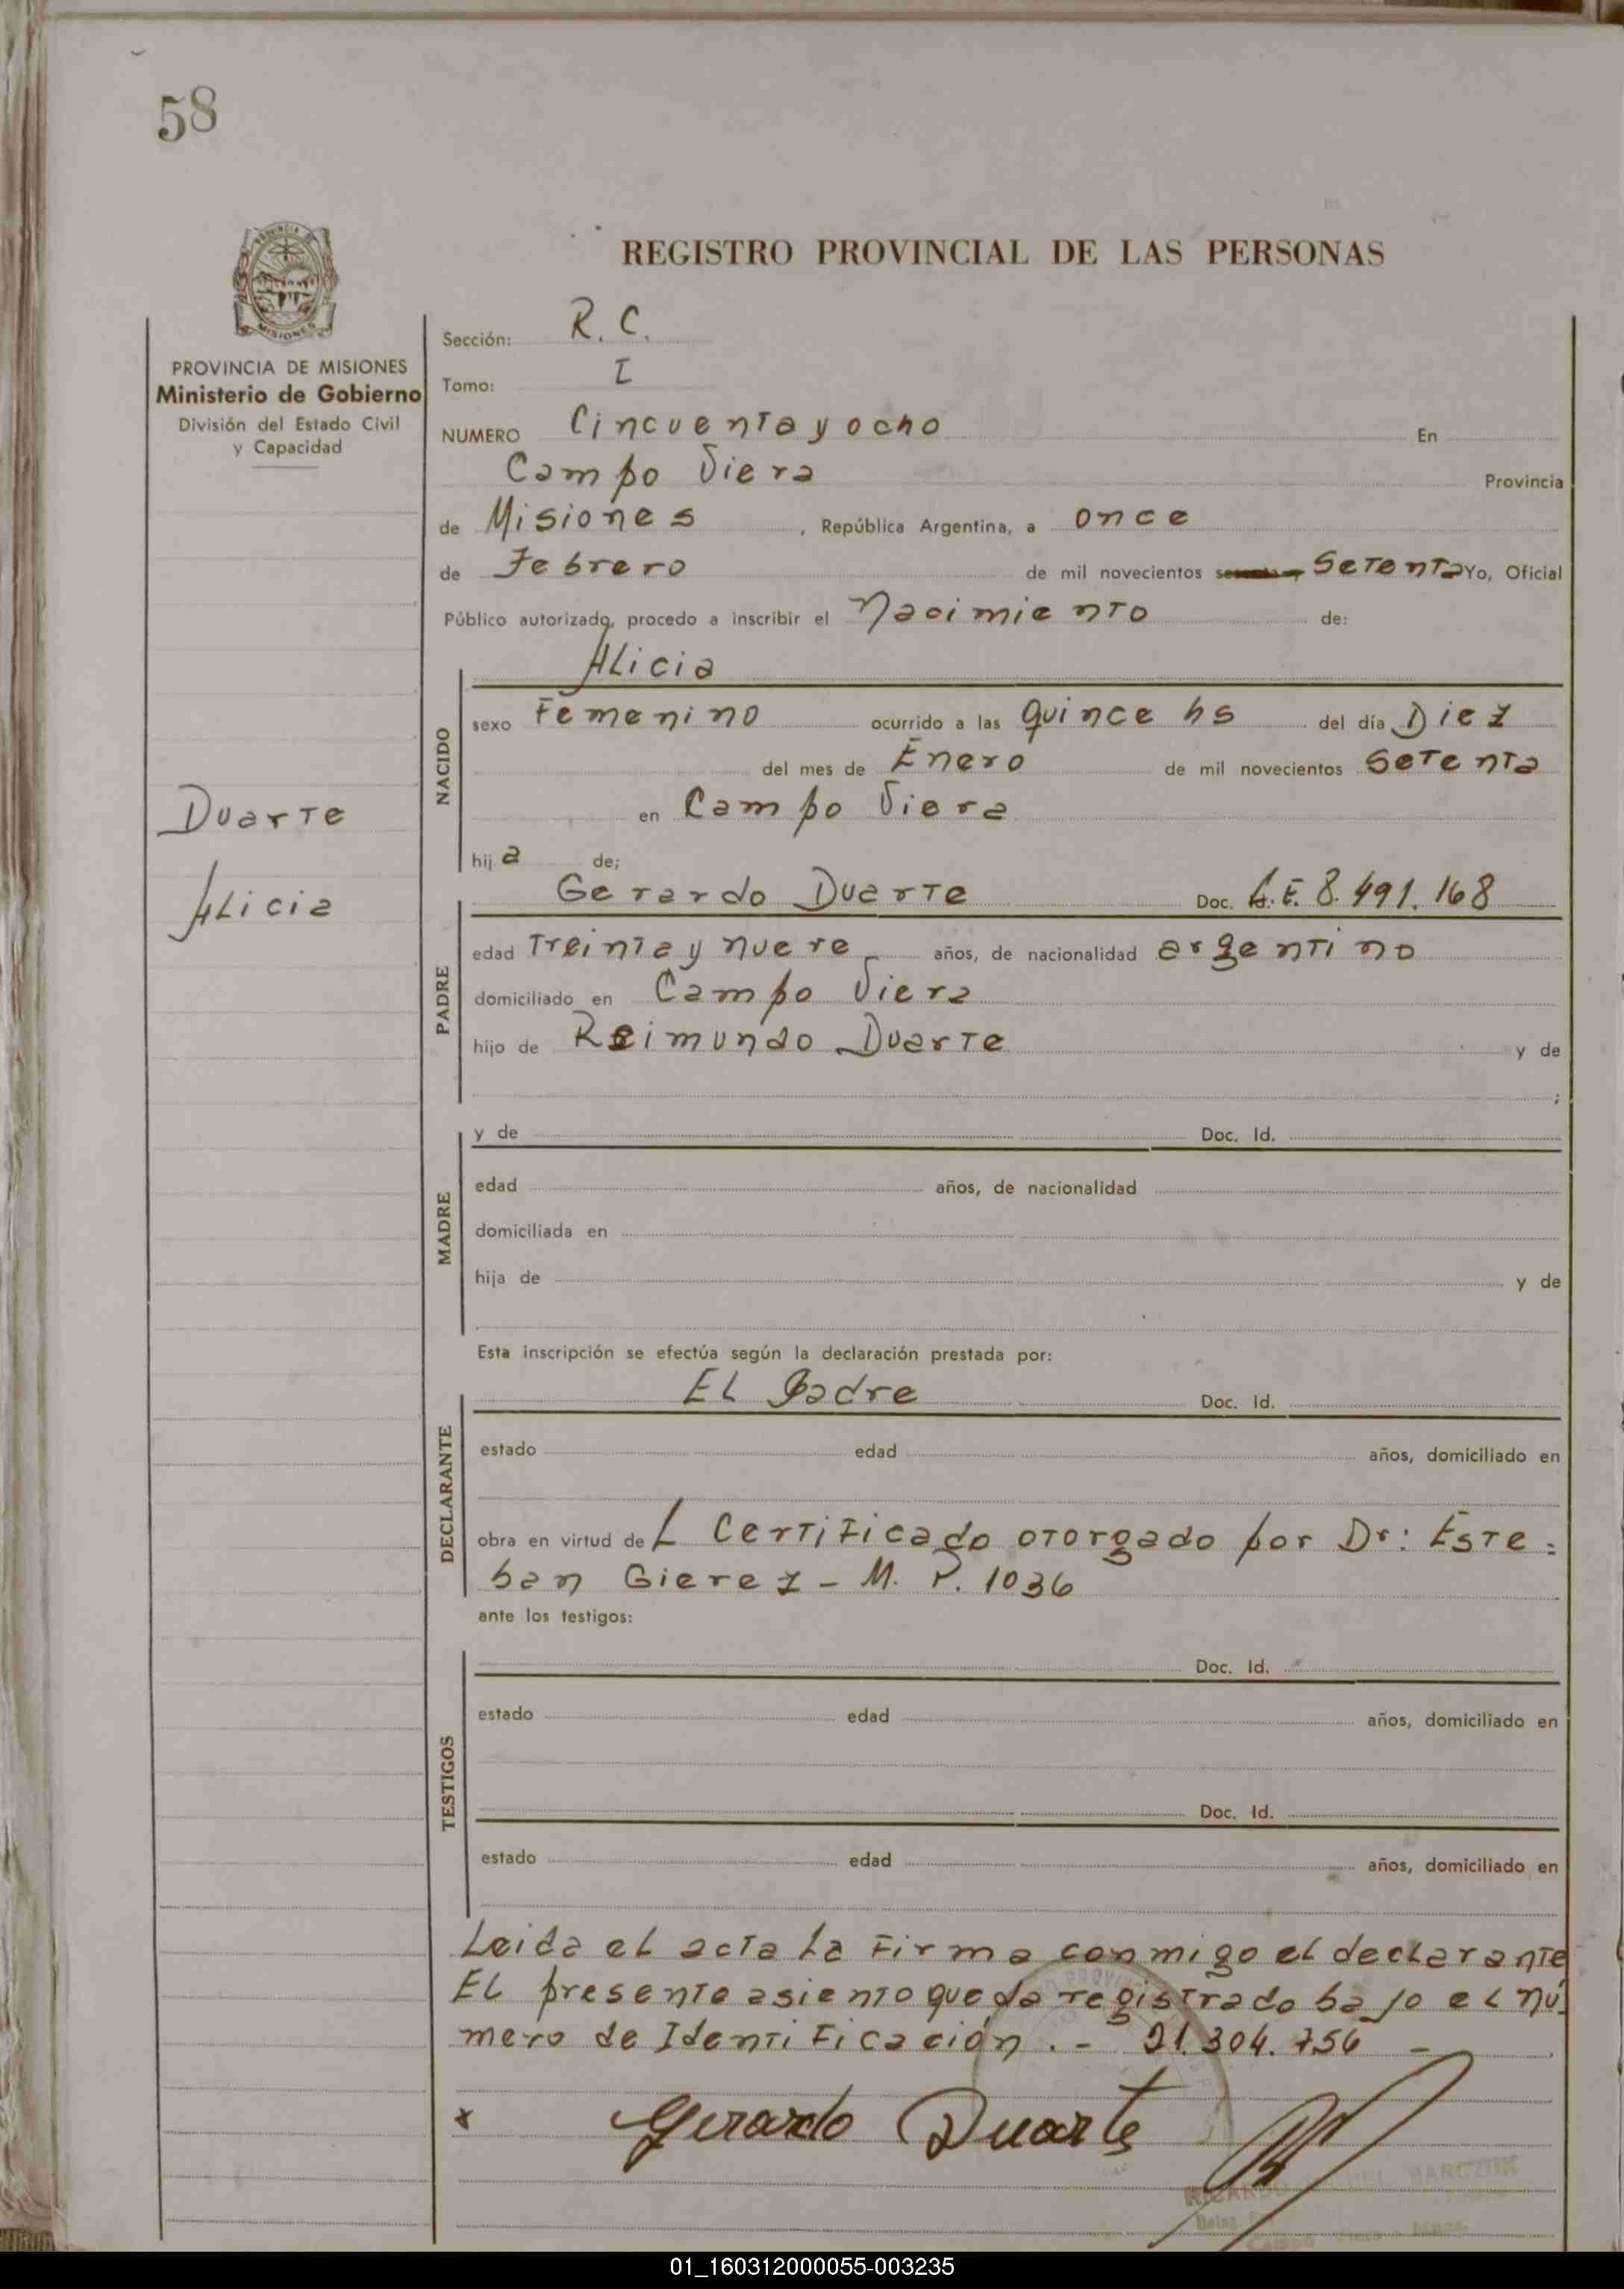 58
REGISTRO PROVINCIAL DE LAS PERSONAS
MISIONES
PROVINCIA DE MISIONES
Ministerio de Gobierno
División del Estado Civil
y Capacidad
Duarte
Alicia
Sección: R. C.
Tomo: I
NUMERO Cincuenta y ocho En
Campo Viera Provincia
de Misiones, República Argentina, a once
de Febrero de mil novecientos Setenta Yo, Oficial
Público autorizado, procedo a inscribir el Nacimiento de:
Alicia
NACIDO
sexo Femenino ocurrido a las quince hs del día Diez
del mes de Enero de mil novecientos Setenta
en Campo Viera
hija de;
Gerardo Duarte Doc. L.E. 8.491.168
PADRE
edad Treinta y nueve años, de nacionalidad argentino
domiciliado en Campo Viera
hijo de Reimundo Duarte y de
;
y de Doc. Id.
MADRE
edad años, de nacionalidad
domiciliada en
hija de y de
Esta inscripción se efectúa según la declaración prestada por:
EL Padre Doc. Id.
DECLARANTE
estado edad años, domiciliado en
obra en virtud de L Certificado otorgado por Dr: Este=
ban Gierez - M. P. 1036
ante los testigos:
Doc. Id.
TESTIGOS
estado edad años, domiciliado en
Doc. Id.
estado edad años, domiciliado en
Leida el acta la firma conmigo el declarante
EL presente asiento queda registrado bajo el nú
mero de Identificación . - 21.304.756 -
x Gerardo Duarte
RICARDO BARCZUK
01_160312000055-003235